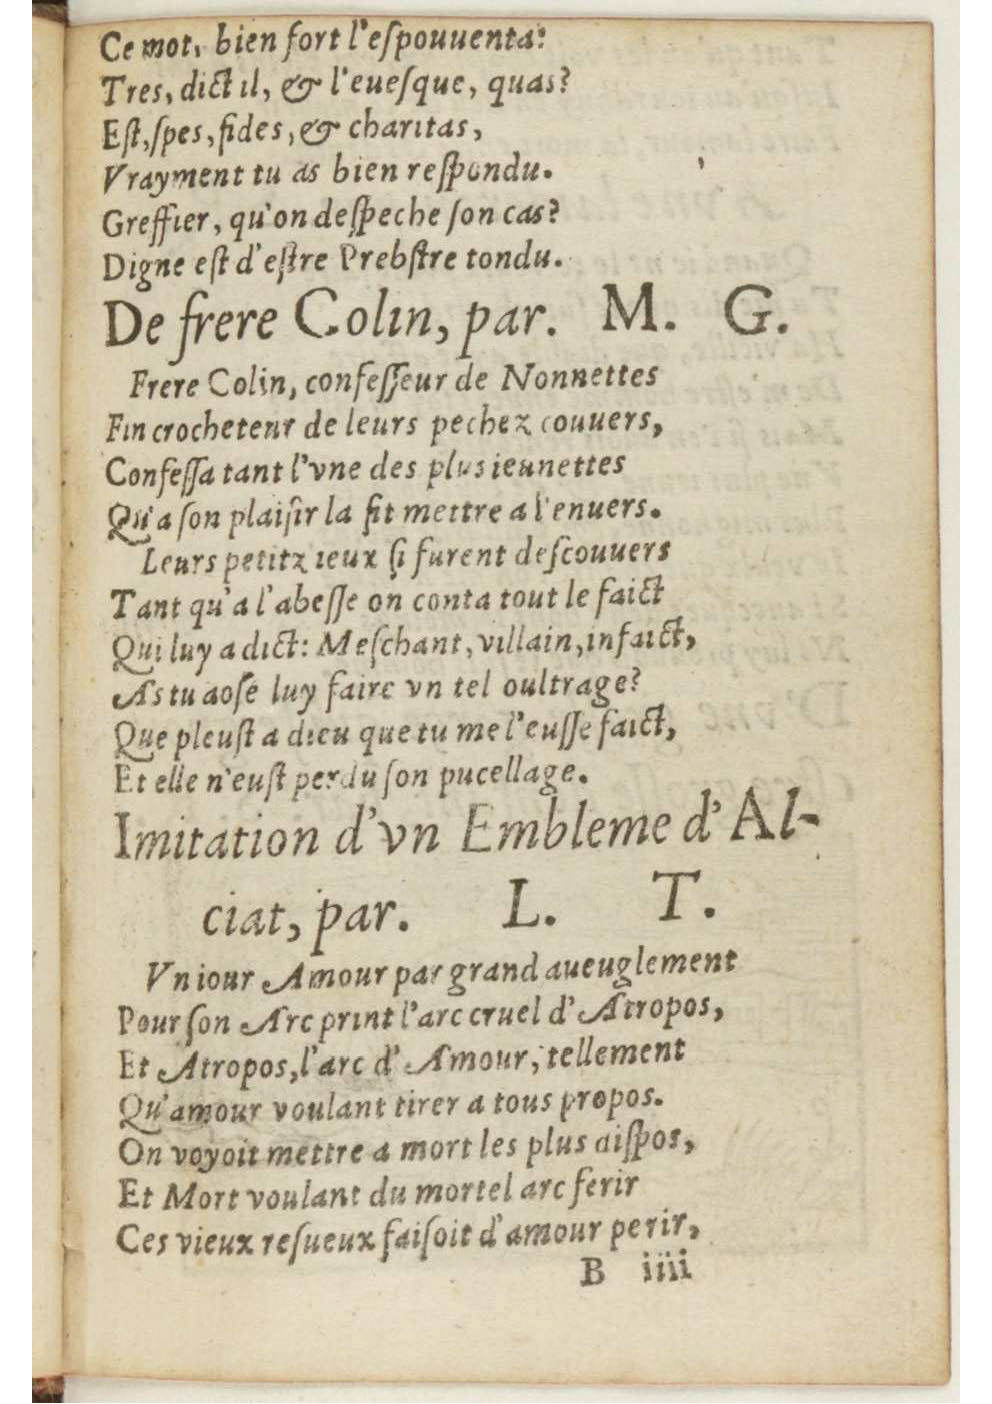 Ce mot, bien fort l'eſpouuenta:
Tres, dict il, & l'eueſque, quas?
Eſt, ſpes, fides, & charitas,
Vrayment tu as bien reſpondu.
Greffier, qu'on deſpeche ſon cas?
Digne eſt d'eſtre Prebſtre tondu.
De frere Colin, par. M. G.
Frere Colin, confeſſeur de Nonnettes
Fin crocheteur de leurs pechez couuers,
Confeſſa tant l'vne des plus ieunettes
Qu'a ſon plaiſir la fit mettre a l'enuers.
Leurs petitz ieux ſi furent deſcouuers
Tant qu'a l'abeſſe on conta tout le faict
Qui luy a dict: Meſchant, villain, infaict,
As tu aoſé luy faire vn tel oultrage?
Que pleuſt a dieu que tu me l'euſſe faict,
Et elle n'euſt perdu ſon pucellage.
Imitation d'vn Embleme d'Al-
ciat, par. L. T.
Vn iour Amour par grand aueuglement
Pour ſon Arc print l'arc cruel d'Atropos,
Et Atropos, l'arc d'Amour, tellement
Qu'amour voulant tirer a tous propos.
On voyoit mettre a mort les plus diſpos,
Et Mort voulant du mortel arc ferir
Ces vieux reſueux faiſoit d'amour perir,
B iiii